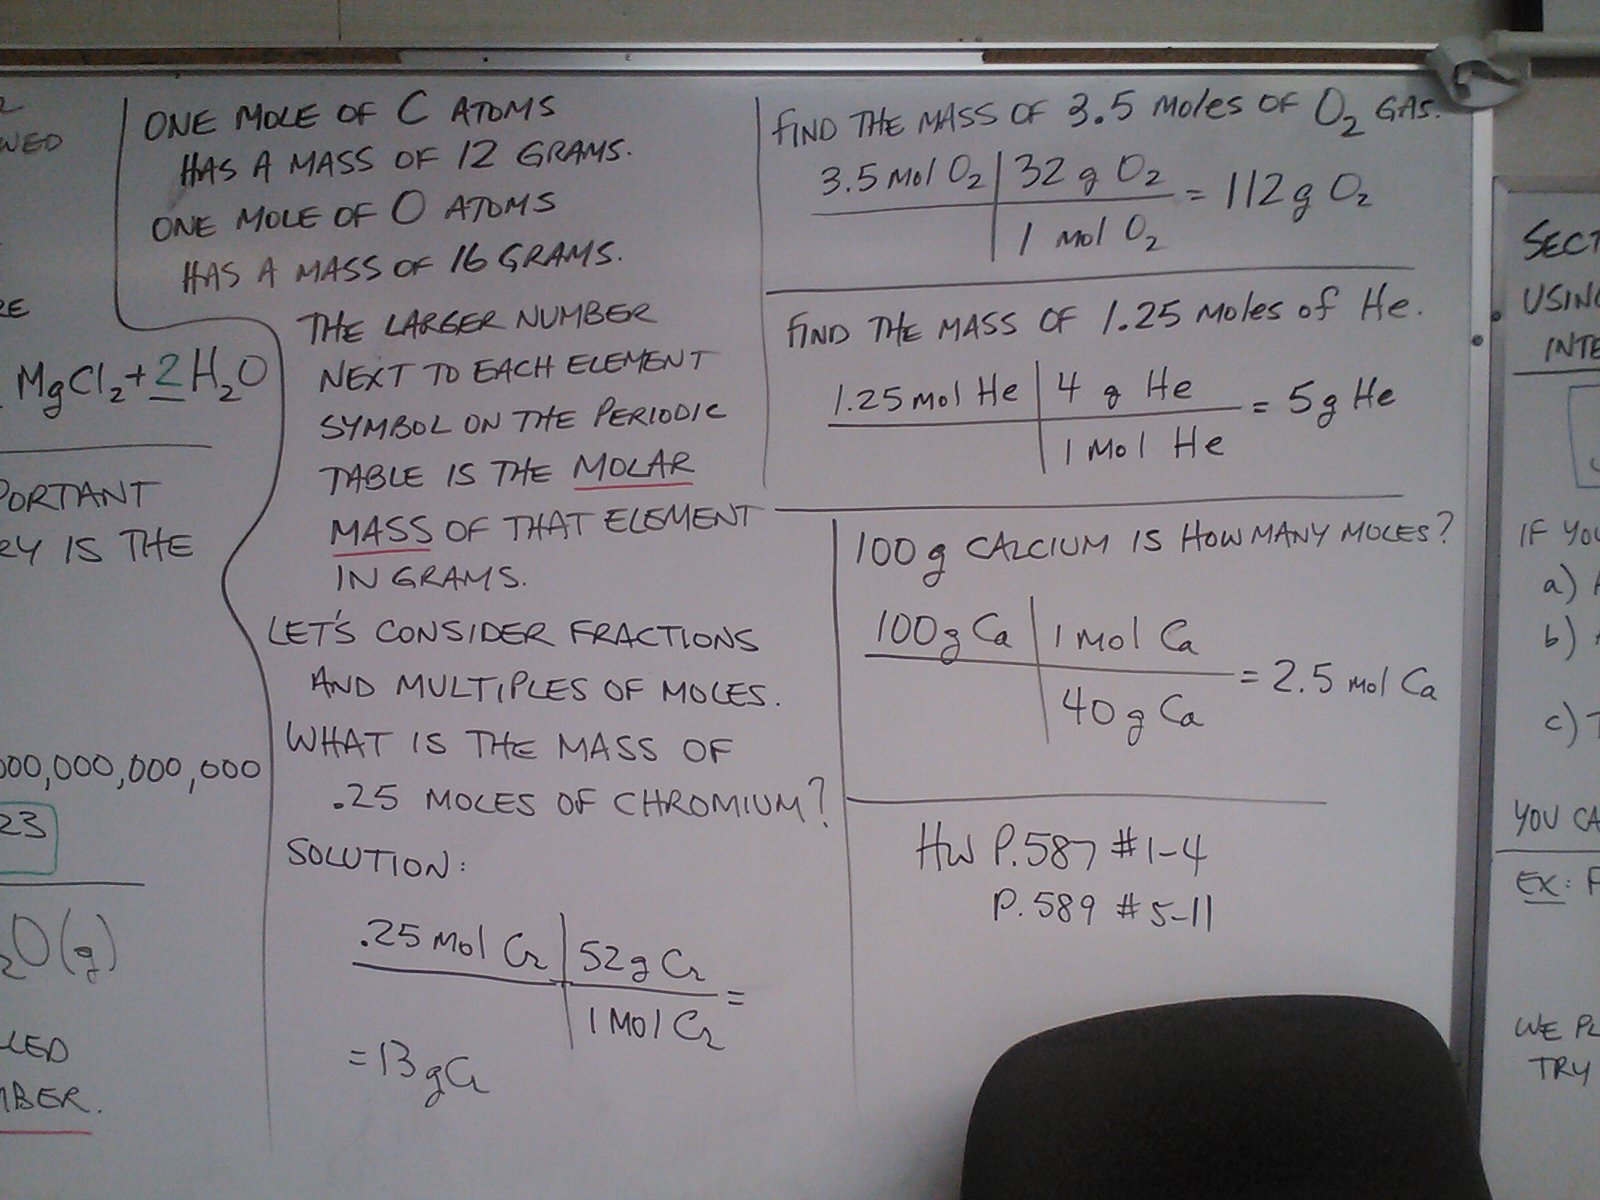 WED
RE
MgCl2+2H2O
PORTANT
RY IS THE
000,000,000,000
23
2O(g)
LLED
MBER.
ONE MOLE OF C ATOMS
HAS A MASS OF 12 GRAMS.
ONE MOLE OF O ATOMS
HAS A MASS OF 16 GRAMS.
THE LARGER NUMBER
NEXT TO EACH ELEMENT
SYMBOL ON THE PERIODIC
TABLE IS THE MOLAR
MASS OF THAT ELEMENT
IN GRAMS.
LET'S CONSIDER FRACTIONS
AND MULTIPLES OF MOLES.
WHAT IS THE MASS OF
.25 MOLES OF CHROMIUM?
SOLUTION:
.25 Mol Cr | 52g Cr
1 Mol Cr =
=13 g Cr
FIND THE MASS OF 3.5 Moles OF O2 GAS.
3.5 Mol O2 | 32 g O2
1 Mol O2 = 112 g O2
FIND THE MASS OF 1.25 Moles of He.
1.25 mol He | 4 g He
1 Mol He = 5g He
100 g CALCIUM IS HOW MANY MOLES?
100g Ca | 1 Mol Ca
40 g Ca = 2.5 Mol Ca
HW P.587 #1-4
P.589 #5-11
SECT
USING
INTE
IF YOU
a)
b)
c) T
YOU CA
EX:
WE PL
TRY